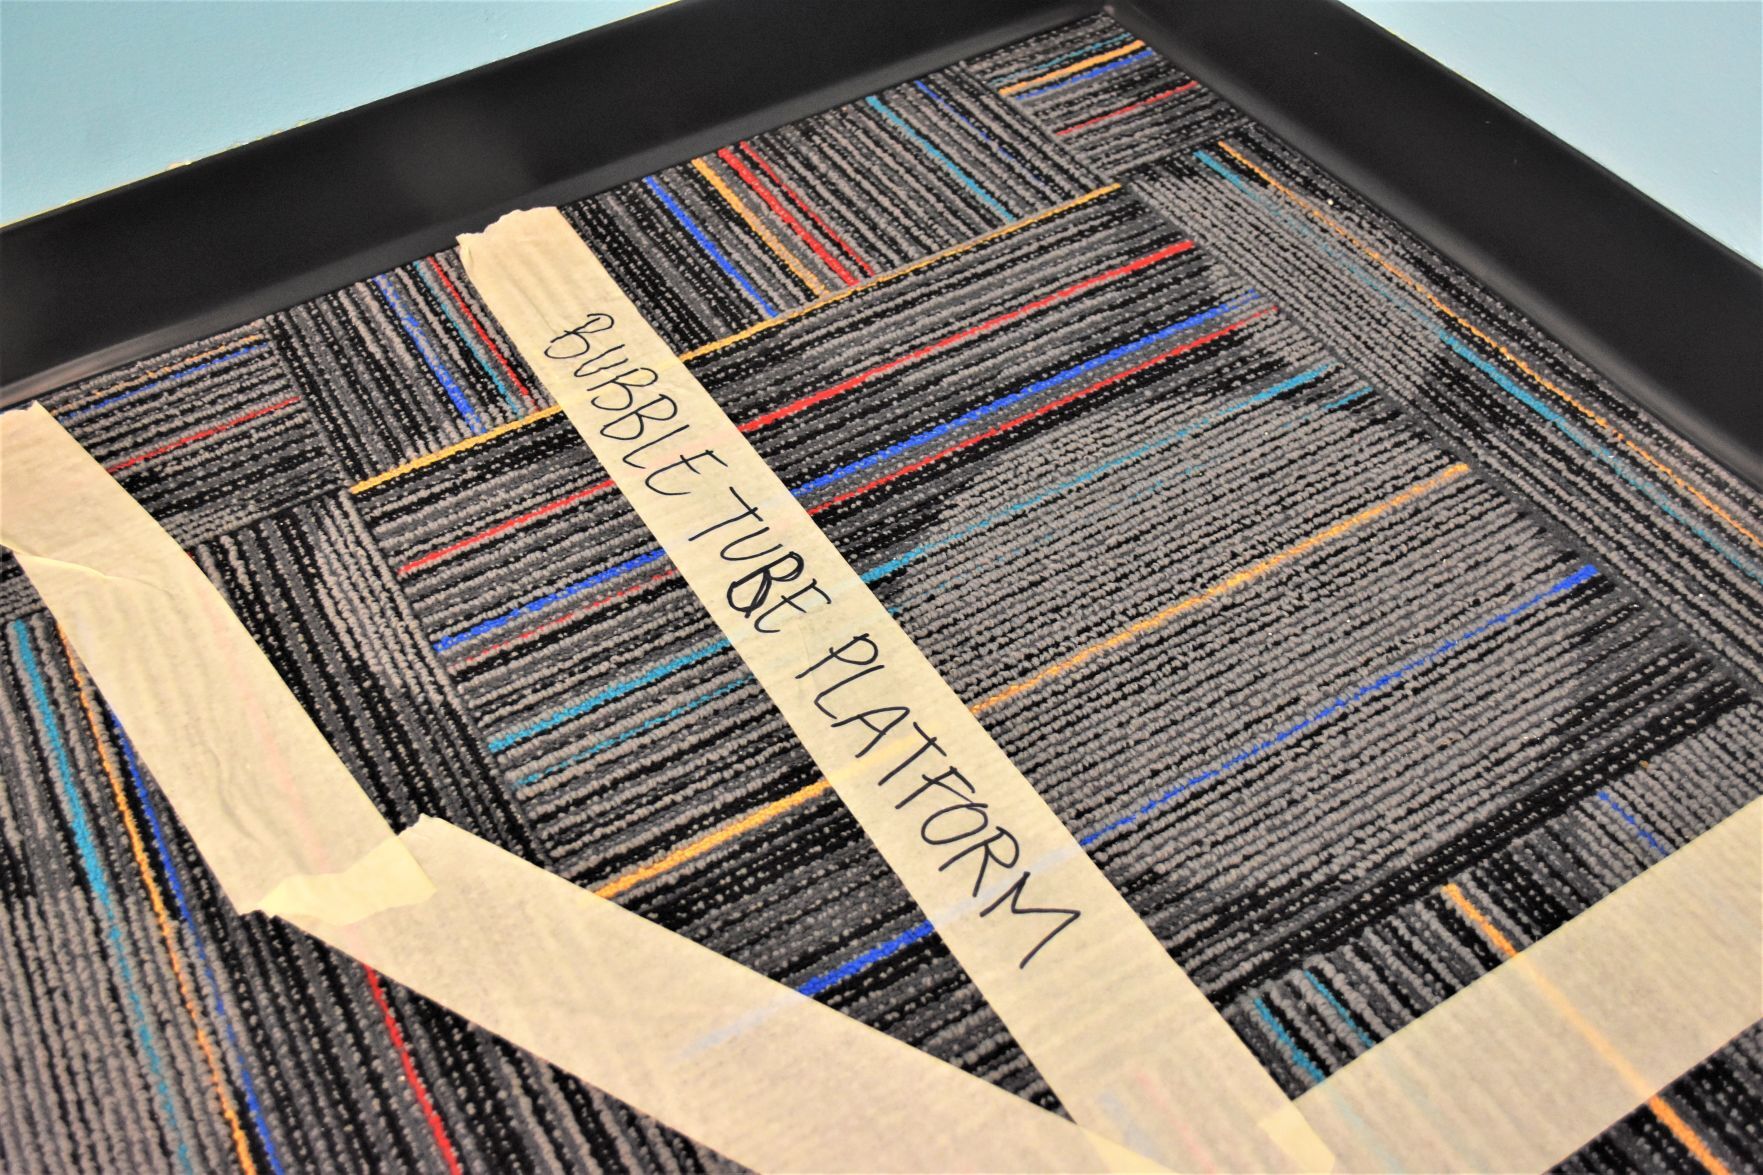 BUBBLE TUBE PLATFORM